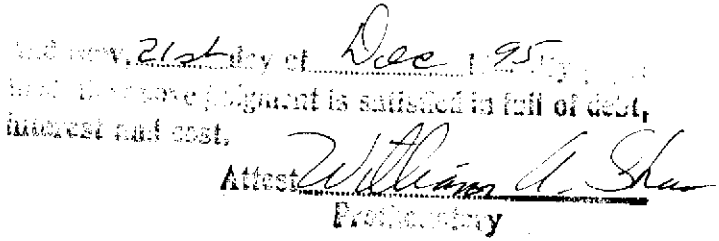 and now, 21st day of Dec 1995, by
above judgment is satisfied in full of debt,
interest and cost.
Attest William A. Shaw
Prothonotary